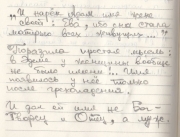 „И нарек Адам имя жене
своей: Ева, ибо она стала
матерью всех живущих..."
Поразила простая мысль:
в Эдеме у женщины вообще
не было имени!.. Имя
появилось у неё только
после грехопадения!
И дал ей имя не Бог-
Творец и Отец, а муж.